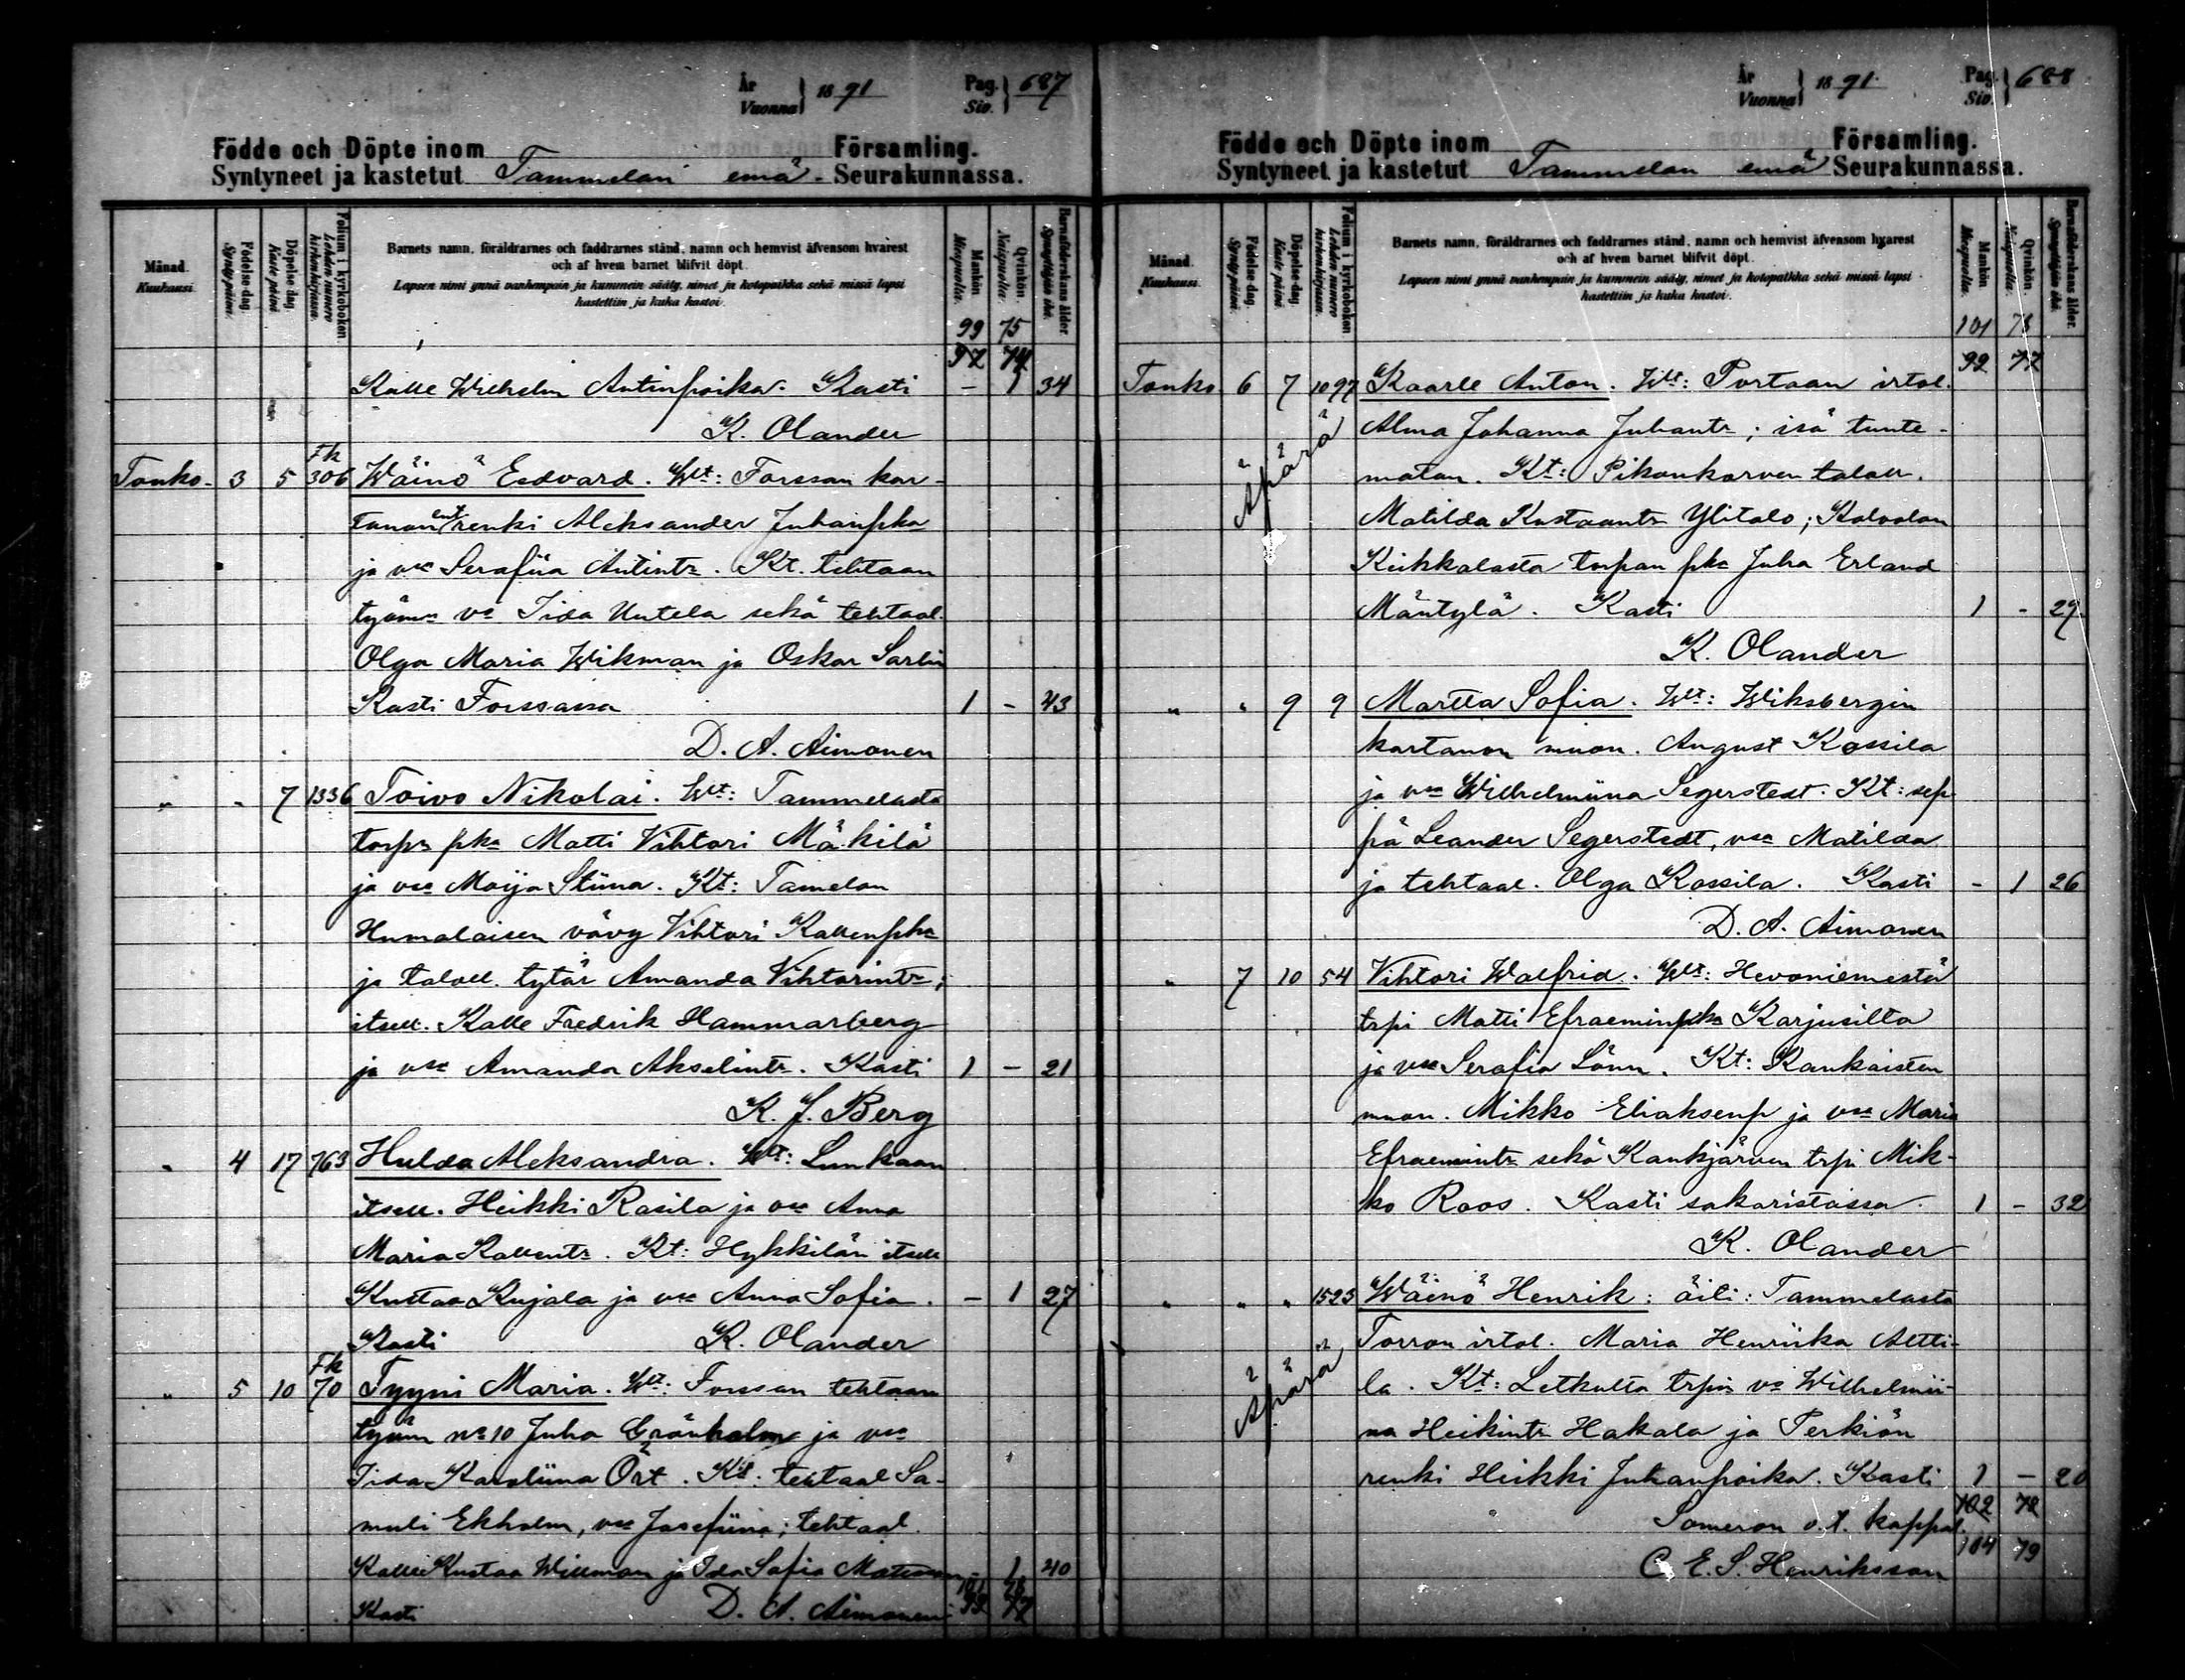 År
Vuonna } 1891
Pag.
Siv. } 687
Födde och Döpte inom Församling.
Syntyneet ja kastetut Tammelan emä- Seurakunnassa.
Månad.
Kuukausi.
Födelse dag.
Synty päivä.
Döpelse dag.
Kaste päivä
Folium i kyrkoboken
Lehden numero
kirkonkirjassa.
Barnets namn, föräldrarnes och faddrarnes stånd, namn och hemvist äfvensom hvarest
och af hvem barnet blifvit döpt.
Lapsen nimi ynnä vanhempain ja kummein sääty, nimet ja kotopaikka sekä missä lapsi
kastettiin ja kuka kastoi.
Mankön
Miespuolia.
Qvinkön.
Naispuolia.
Barnaföderskans ålder.
Synnyttäjän ikä.
99 75
97 74
Kalle Wilhelm Antinpoika. Kasti - 1 34
K. Olander
Fk
Touko- 3 5 306 Wäinö Edvard. Wt: Forssan kar-
tanon ent renki Aleksander Juhanpka
ja vsa Serafiia Antintr. Kt. tehtaan
työms va Iida Uutela sekä tehtaal.
Olga Maria Wikman ja Oskar Sarlin
Kasti Forssassa 1 - 43
D. A. Aimonen
" - 7 1336 Toivo Nikolai. Wt: Tammelasta
torpn pka Matti Vihtori Mäkilä
ja vsa Maija Stiina. Kt: Tamelan
Humalaisen vävy Vihtori Kallenpka
ja taloll. tytär Amanda Vihtorintr;
itsell. Kalle Fredrik Hammarberg
ja vsa Amanda Akselintr. Kasti 1 - 21
K. J. Berg
" 4 17 763 Hulda Aleksandra. Wt: Lunkaan
itsell. Heikki Rasila ja vsa Anna
Maria Kallentr. Kt: Hykkilän itsell
Kustaa Kujala ja vsa Anna Sofia. - 1 27
Kasti K. Olander
Fk
" 5 10 70 Tyyni Maria. Wt: Forssan tehtaan
työm no 10 Juho Grönholm ja vsa
Iida Karoliina Öst. Kt: tehtaal Sa-
muli Ekholm, vsa Josefiina; tehtaal.
Kalle Kustaa Willman ja Ida Sofia - 1 40
Kasti D. A. Aimonen
År
Vuonna } 1891.
Pag.
Siv. } 688
Födde och Döpte inom Församling.
Syntyneet ja kastetut Tammelan emä Seurakunnassa.
Månad.
Kuukausi.
Födelse dag.
Synty päivä.
Döpelse-dag.
Kaste päivä
Folium i kyrkoboken
Lehden numero
kirkonkirjassa.
Barnets namn, föräldrarnes och faddrarnes stånd, namn och hemvist äfvensom hvarest
och af hvem barnet blifvit döpt.
Lapsen nimi ynnä vanhempain ja kummein sääty, nimet ja kotopaikka sekä missä lapsi
kastettiin ja kuka kastoi.
Mankön
Miespuolia.
Qvinkön
Naispuolia.
Barnaföderskans ålder.
Synnyttäjän ikä.
101 78
99 77
Touko 6 7 1097 Kaarle Anton. Wt: Portaan irtol.
Äpärä
Alma Johanna Juhantr; isä tunte-
maton. Kt: Pikonkorven taloll.
Matilda Kustaantr Ylitalo; Kalvolan
Keikkalasta torpan pka Juha Erland
Mäntylä. Kasti 1 - 29
K. Olander
" " 9 9 Martta Sofia. Wt: Wiksbergin
kartanon muon. August Kossila
ja vsa Wilhelmiina Segerstedt. Kt: sep
pä Leander Segerstedt, vsa Matilda
ja tehtaal. Olga Kossila. Kasti - 1 26
D. A. Aimonen
" 7 10 54 Vihtori Walfrid. Wt: Hevoniemestä
trpi Matti Efraeminpka Karjusilta
ja vsa Serafia Lönn. Kt: Kankaisten
muon. Mikko Eliaksenp ja vsa Maria
Efraemintr sekä Kaukjärven trpi Mik-
ko Roos. Kasti sakaristossa. 1 - 32
K. Olander
" " " 1523 Wäinö Henrik: äiti: Tammelasta
Äpärä
Torron irtol. Maria Henriika Altti-
la. Kt: Letkulta trpin va Wilhelmii-
na Heikintr Hakala ja Perkiön
renki Heikki Juhanpoika. Kasti 1 - 20
102 78
Someron v.t. kappal.
104 79
C. E. S. Henriksson